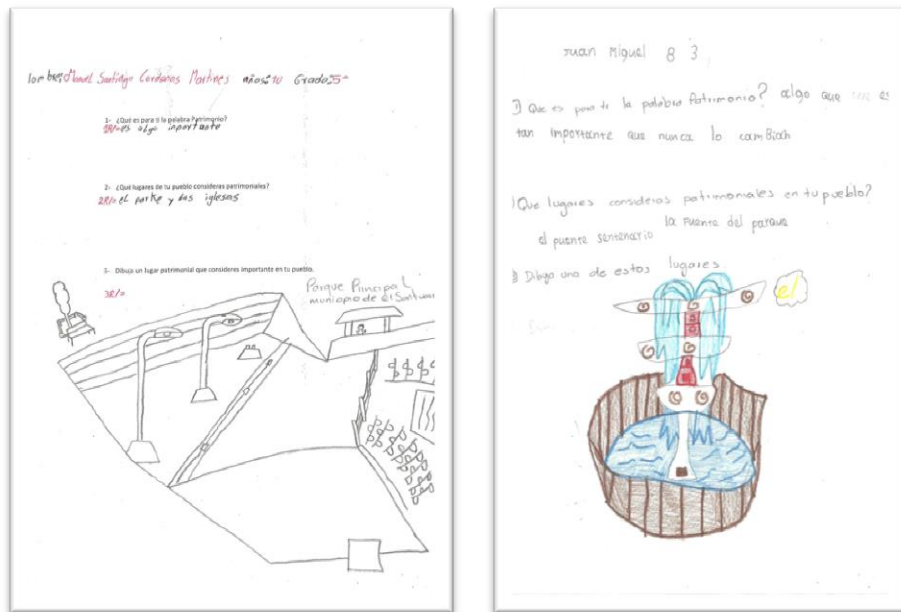 Nombre: Manuel Santiago Cardenas Martines años: 10 Grado: 5-
1- ¿Qué es para ti la palabra Patrimonio?
1R/= es algo inportante
2- ¿Qué lugares de tu pueblo consideras patrimoniales?
2R/= el parke y las iglesias
3- Dibuja un lugar patrimonial que consideres importante en tu pueblo.
3R/=
Parque Principal
municipio de el Santuar
Juan Miguel 8 3
1) Que es para ti la palabra Patrimonio? algo que es
tan importante que nunca lo cambiah
) Que lugares consideras patrimomiales en tu pueblo?
la Fuente del parque
el puente sentenario
3) Dibuja uno de estos lugares
el